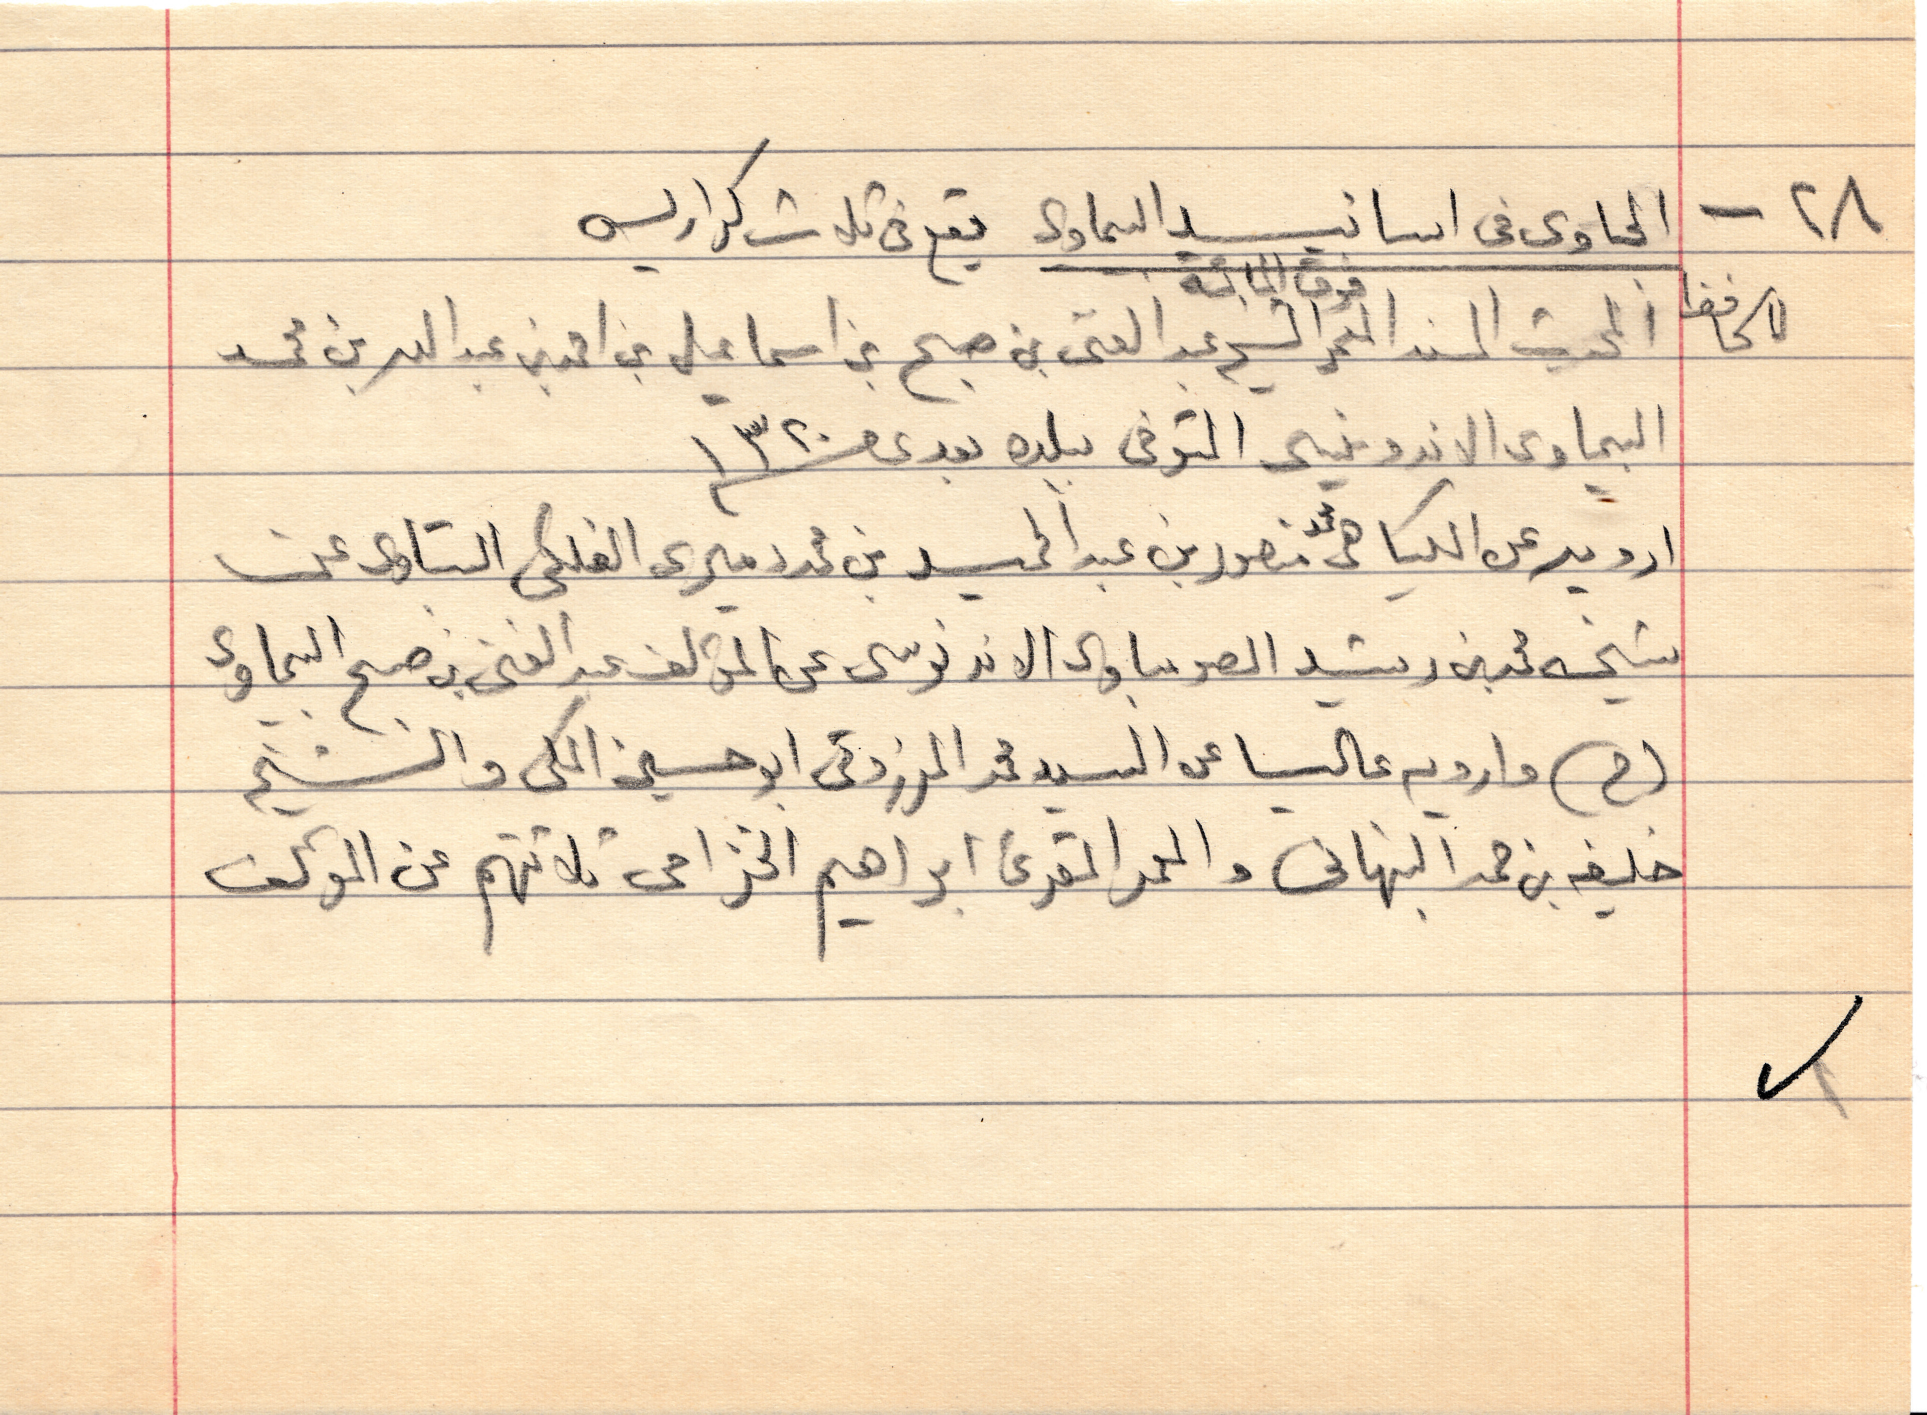 ٢٨ - الحاوى فى اسانيد البماوى يقع فى ثلاث كراريس
للحافظ المحدث المسند المعمر فوق المائة الشيخ عبد الغنى بن صبح بن اسماعيل بن احمد بن عبد الله بن محمد
البيماوى الاندونيسى المتوفى ببلده بعد عام ١٣٢٠
ارويه عن الكياهى محمد منصور بن عبد الحميد بن محمد دميرى الفلكى البتاوى عن
شيخه محمد بن رشيد الصومباوى الاندنوسى عن المؤلف عبد الغنى بن صبح البيماوى
(ح) وارويه عاليا عن السيد محمد المرزوقى ابو حسين المكى والشيخ
خليفه بن حمد النبهانى والمعمر المقرئ ابراهيم الخزامى ثلاثتهم عن المؤلف